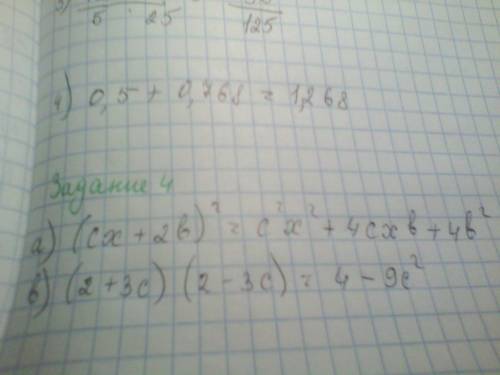 5 · 25 125
4) 0,5 + 0,768 = 1,268
Задание 4
а) (cx + 2b)² = c²x² + 4cxb + 4b²
в) (2 + 3c) (2 - 3c) = 4 - 9c²